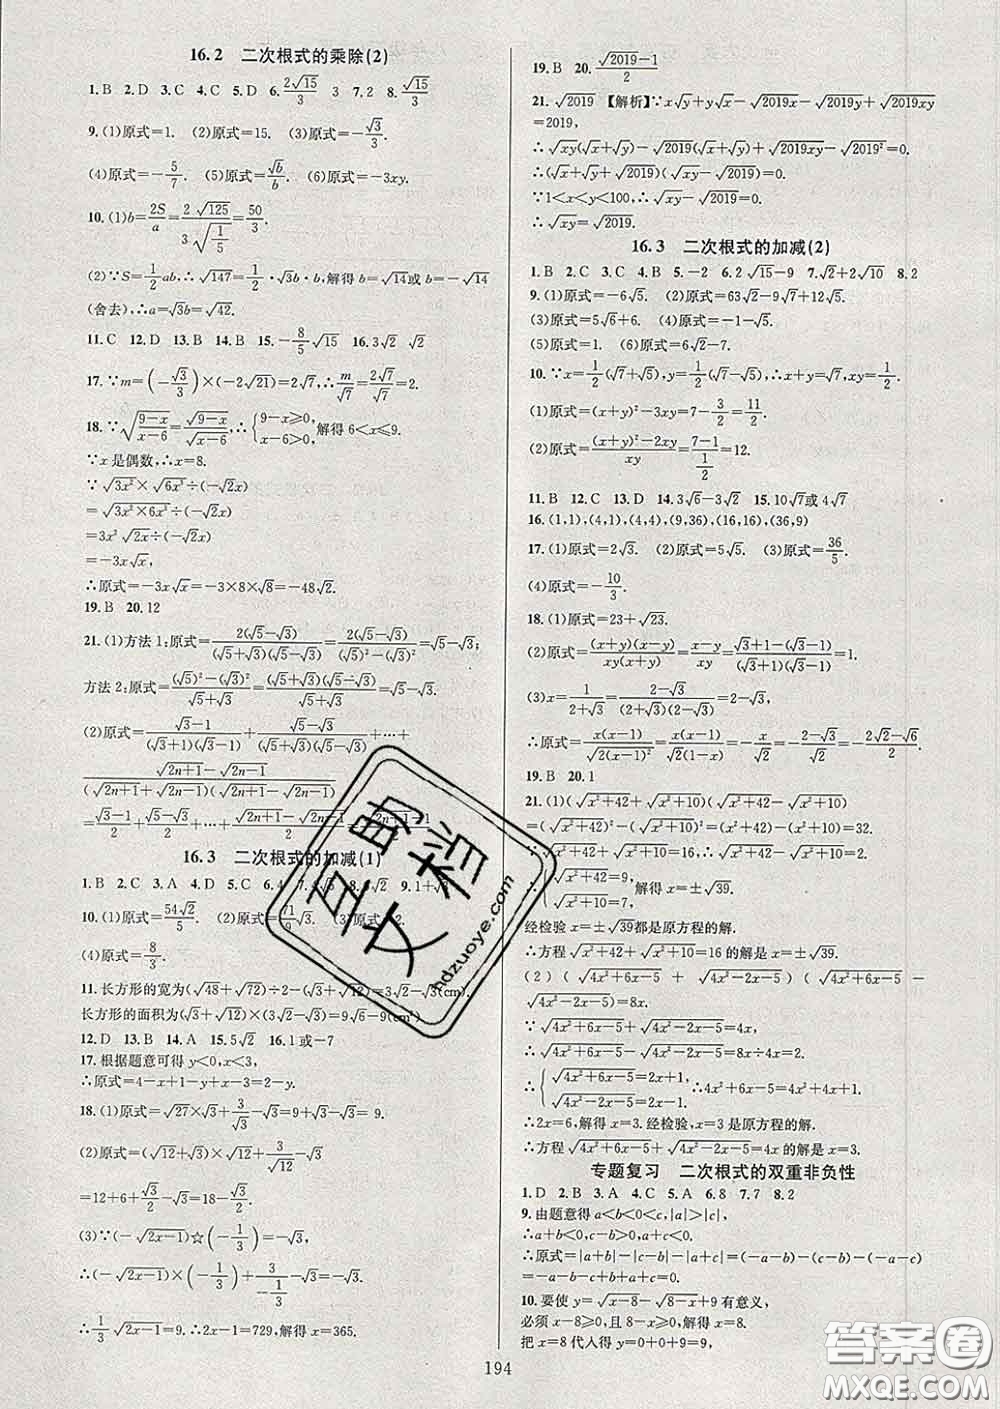 16.2 二次根式的乘除(2)
1.B 2.D 3.C 4.C 5.D 6.2√15/3 3 7.2 8.√15/3
9.(1)原式=1. (2)原式=15. (3)原式=-√3/3.
(4)原式=-5/7. (5)原式=√b/b. (6)原式=-3xy.
10.(1)b=2S/a=2√125/(3√(1/5))=50/3.
(2)∵S=1/2ab,∴√147=1/2·√3b·b,解得b=√14或b=-√14
(舍去),∴a=√3b=√42.
11.C 12.D 13.B 14.B 15.-8/5√15 16.3√2 √2
17.∵m=(-√3/3)×(-2√21)=2√7,∴m/√7=2√7/√7=2.
18.∵√((9-x)/(x-6))=√(9-x)/√(x-6),∴{9-x≥0, x-6>0, 解得6<x≤9.
∵x是偶数,∴x=8.
∵√(3x²)×√(6x³)÷(-√2x)
=√(3x²×6x³)÷(-√2x)
=3x²√2x÷(-√2x)
=-3x√x,
∴原式=-3x√x=-3×8×√8=-48√2.
19.B 20.12
21.(1)方法1:原式=2(√5-√3)/((√5+√3)(√5-√3))=2(√5-√3)/((√5)²-(√3)²)=√5-√3.
方法2:原式=((√5)²-(√3)²)/(√5+√3)=(√5+√3)(√5-√3)/(√5+√3)=√5-√3.
(2)原式=(√3-1)/((√3+1)(√3-1))+(√5-√3)/((√5+√3)(√5-√3))+…+
(√(2n+1)-√(2n-1))/((√(2n+1)+√(2n-1))(√(2n+1)-√(2n-1)))
=(√3-1)/2+(√5-√3)/2+…+(√(2n+1)-√(2n-1))/2=(√(2n+1)-1)/2
16.3 二次根式的加减(1)
1.B 2.C 3.A 4.D 5.C
10.(1)原式=54√2/5. (2)原式=71/9√3.
(4)原式=8/3.
11.长方形的宽为(√48+√72)÷2-(√3+√12)=3√2-√3(cm).
长方形的面积为(√3+√12)×(3√2-√3)=9√6-9(cm²).
12.D 13.B 14.A 15.5√2 16.1或-7
17.根据题意可得y<0,x<3,
∴原式=4-x+1-y+x-3=2-y.
18.(1)原式=√27×√3+3/√3-√3=9+√3-√3=9.
(2)原式=√3×√12+√3/√12+√12×√3-√12/√3
=12+6+√3/3-√3/3=18-√3.
(3)∵(-√(2x-1))☆(-1/3)=-√3,
∴(-√(2x-1))×(-1/3)+3/(-1/3)-√3=-√3,
∴1/3√(2x-1)=9.∴2x-1=729,解得x=365.
19.B 20.(√2019-1)/2
21.√2019 【解析】∵x√y+y√x-√2019x-√2019y+√2019xy
=2019,
∴√xy(√x+√y)-√2019(√x+√y)+√2019xy-√2019²=0.
∴(√x+√y+√2019)(√xy-√2019)=0.
∵1<x<y<100,∴√xy-√2019=0.
∴√xy=√2019.
16.3 二次根式的加减(2)
1.B 2.C 3.C 4.B 5.-2 6.2√15-9 7.√2+2√10 8.2
9.(1)原式=-6√5. (2)原式=63√2-9√7.
(3)原式=5√6+6. (4)原式=-1-√5.
(5)原式=1. (6)原式=6√2-7.
10.∵x=1/2(√7+√5),y=1/2(√7-√5),∴x+y=√7,xy=1/2.
(1)原式=(x+y)²-3xy=7-3/2=11/2.
(2)原式=((x+y)²-2xy)/xy=(7-1)/(1/2)=12.
11.B 12.C 13.D 14.3√6-3√2 15.10√7或4√7
16.(1,1),(4,1),(4,4),(9,36),(16,16),(36,9)
17.(1)原式=2√3. (2)原式=5√5. (3)原式=36/5.
(4)原式=-10/3.
18.(1)原式=23+√23.
(2)原式=(x+y)(x-y)/(xy(x+y))=(x-y)/xy=(√3+1-(√3-1))/((√3+1)(√3-1))=1.
(3)x=1/(2+√3)=(2-√3)/1=2-√3,
∴原式=x(x-1)/√(2(x-1)²)=x(x-1)/(√2(1-x))=-x/√2=-(2-√3)/√2=-(2√2-√6)/2.
19.B 20.1
21.(1)(√(x²+42)+√(x²+10))(√(x²+42)-√(x²+10))
=(√(x²+42))²-(√(x²+10))²=(x²+42)-(x²+10)=32.
∵√(x²+42)+√(x²+10)=16,∴√(x²+42)-√(x²+10)=32÷16=2.
∴{√(x²+42)=9, √(x²+10)=7, 解得x=±√39.
经检验x=±√39都是原方程的解.
∴方程√(x²+42)+√(x²+10)=16的解是x=±√39.
(2)(√(4x²+6x-5)+√(4x²-2x-5))(√(4x²+6x-5)-
√(4x²-2x-5))=8x.
∵√(4x²+6x-5)+√(4x²-2x-5)=4x,
∴√(4x²+6x-5)-√(4x²-2x-5)=8x÷4x=2.
∴{√(4x²+6x-5)=2x+1, √(4x²-2x-5)=2x-1. ∴4x²+6x-5=4x²+4x+1.
∴2x=6,解得x=3.经检验,x=3是原方程的解.
∴方程√(4x²+6x-5)+√(4x²-2x-5)=4x的解是x=3.
专题复习 二次根式的双重非负性
1.D 2.B 3.A 4.C 5.A 6.8 7.7 8.2
9.由题意得a<b<0<c,|a|>|c|,
∴a+b<0,c-b>0,a+c<0.
∴原式=|a+b|-|c-b|-|a+c|=(-a-b)-(c-b)-(-a-c)
=-a-b-c+b+a+c=0.
10.要使y=√(x-8)-√(8-x)+9有意义,
必须x-8≥0,且8-x≥0,解得x=8.
把x=8代入得y=0+0+9=9,
194
互助文档
hdzuoye.com
答案圈
MXQE.COM